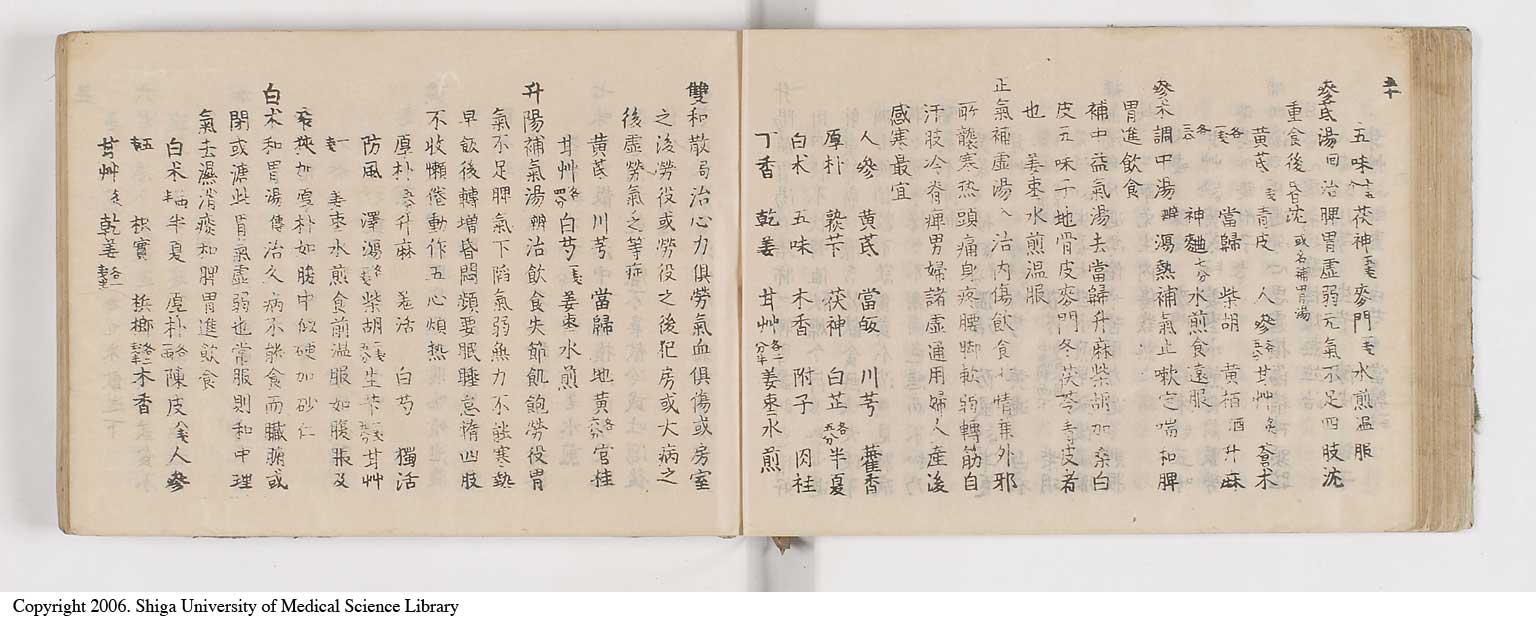 五味 茯神 麥門 水煎溫服
參芪湯 回 治脾胃虛弱元氣不足四肢沈
重食後昏沈 或名補胃湯
黃芪 青皮 人參 甘艸 蒼朮
當歸 柴胡 黃栢 酒 升麻
各 神麯 七分 水煎食遠服
參朮調中湯 瀉熱補氣止嗽定喘和脾
胃進飲食
補中益氣湯去當歸升麻柴胡加桑白
皮五味子地骨皮麥門冬茯苓青皮者
也 姜棗水煎溫服
正氣補虛湯 治內傷飲食七情兼外邪
所襲寒热頭痛身疼腰脚軟弱轉筋自
汗肢冷脊痺男婦諸虛通用婦人產後
感寒最宜
人參 黃芪 當皈 川芎 藿香
厚朴 茯神 白芷 半夏
白朮 五味 木香 附子 肉桂
丁香 乾姜 甘艸 各一分半 姜棗水煎
雙和散 局 治心力俱勞氣血俱傷或房室
之後勞役或勞役之後犯房或大病之
後虛勞氣乏等症
黃芪 川芎 當歸 地黃 官桂
甘艸 白芍 姜棗水煎
升陽補氣湯 辨 治飲食失節飢飽勞役胃
氣不足脾氣下陷氣弱無力不能寒熱
早飯後轉增昏悶頻要眠睡怠惰四肢
不收懶倦動作五心煩热
厚朴 升麻 羗活 白芍 獨活
防風 澤瀉 柴胡 生苄 甘艸
姜棗水煎食前溫服如腹脹及
窄狹加厚朴如腹中似硬加砂仁
白朮和胃湯 傳 治久病不能食而臟腑或
閉或溏此胃氣虛弱也常服則和中理
氣去濕消痰和脾胃進飲食
白朮 半夏 厚朴 陳皮 人參
枳實 梹榔 木香
甘艸 乾姜